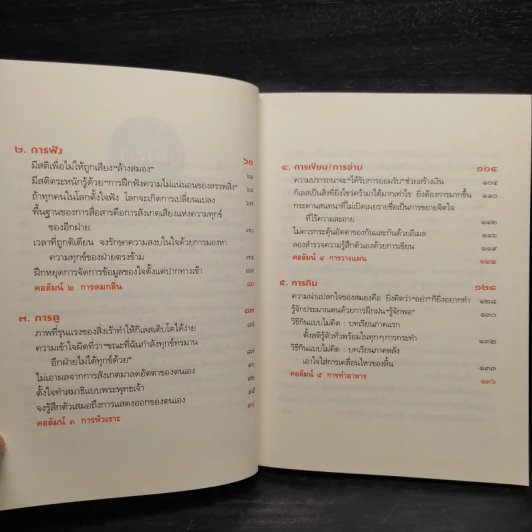 ๒. การฟัง ๖๐
มีสติเพื่อไม่ให้ถูกเสียง"ล้างสมอง"
มีสติตระหนักรู้ด้วย"การฝึกฟังความไม่แน่นอนของสรรพสิ่ง"
ถ้าทุกคนในโลกตั้งใจฟัง โลกจะเกิดการเปลี่ยนแปลง
พื้นฐานของการสื่อสารคือการสังเกตเสียงแห่งความทุกข์
ของอีกฝ่าย
เวลาที่ถูกติเตียน จงรักษาความสงบในใจด้วยการมองหา
ความทุกข์ของฝ่ายตรงข้าม
ฝึกหยุดการจัดการข้อมูลของใจตั้งแต่ปากทางเข้า
คอลัมน์ ๒ การดมกลิ่น
๓. การดู
ภาพที่รุนแรงของสิ่งเร้าทำให้กิเลสเติบโตได้ง่าย
ความเข้าใจผิดที่ว่า "ขณะที่ฉันกำลังทุกข์ทรมาน
อีกฝ่ายไม่ได้ทุกข์ด้วย"
ไม่เอาผลจากการสังเกตมาลดอัตตาของตนเอง
ตั้งใจทำสมาธิแบบพระพุทธเจ้า
จงรู้สึกตัวเสมอถึงการแสดงออกของตนเอง
คอลัมน์ ๓ การหัวเราะ
๔. การเขียน/การอ่าน ๑๐๔
ความปรารถนาจะ"ได้รับการยอมรับ"ช่วยสร้างเงิน ๑๐๔
กิเลสเป็นสิ่งที่ยิ่งไขว่คว้ามาได้มากเท่าไร ยิ่งต้องการมากขึ้น
กระดานสนทนาที่ไม่เปิดเผยรายชื่อเป็นการขยายจิตใจ
ที่ไร้ความละอาย ๑๑๒
ไม่ควรกระตุ้นอัตตาของกันและกันด้วยอีเมล
ลองสำรวจความรู้สึกตัวเองด้วยการเขียน ๑๑๙
คอลัมน์ ๔ การวางแผน ๑๒๒
๕. การกิน ๑๒๘
ความน่าแปลกใจของสมองคือ ยิ่งคิดว่า"อย่า"ก็ยิ่งอยากทำ ๑๒๘
รู้จักประมาณตนด้วยการฝึกฝน"รู้จักพอ" ๑๓๐
วิธีกินแบบไม่คิด : บทเรียนภาคแรก
ตั้งสติรู้ตัวทั่วพร้อมในทุกๆการกระทำ ๑๓๒
วิธีกินแบบไม่คิด : บทเรียนภาคหลัง
เอาใจใส่การเคลื่อนไหวของลิ้น ๑๓๓
คอลัมน์ ๕ การทำอาหาร ๑๓๖